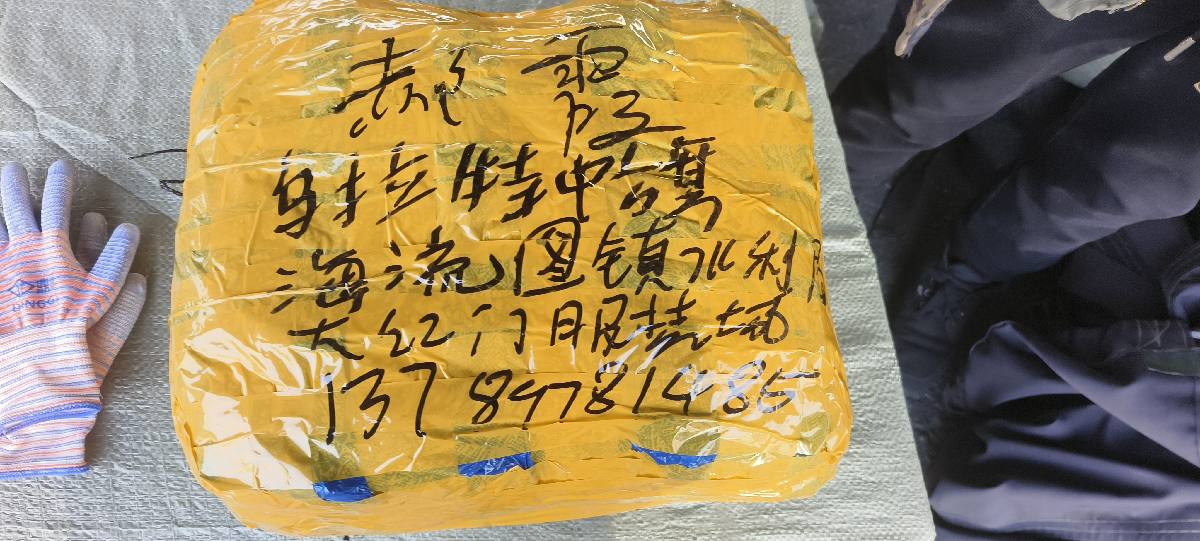 赫 霞
乌拉特中旗
海流图镇水利局
大红门服装城
13789781485